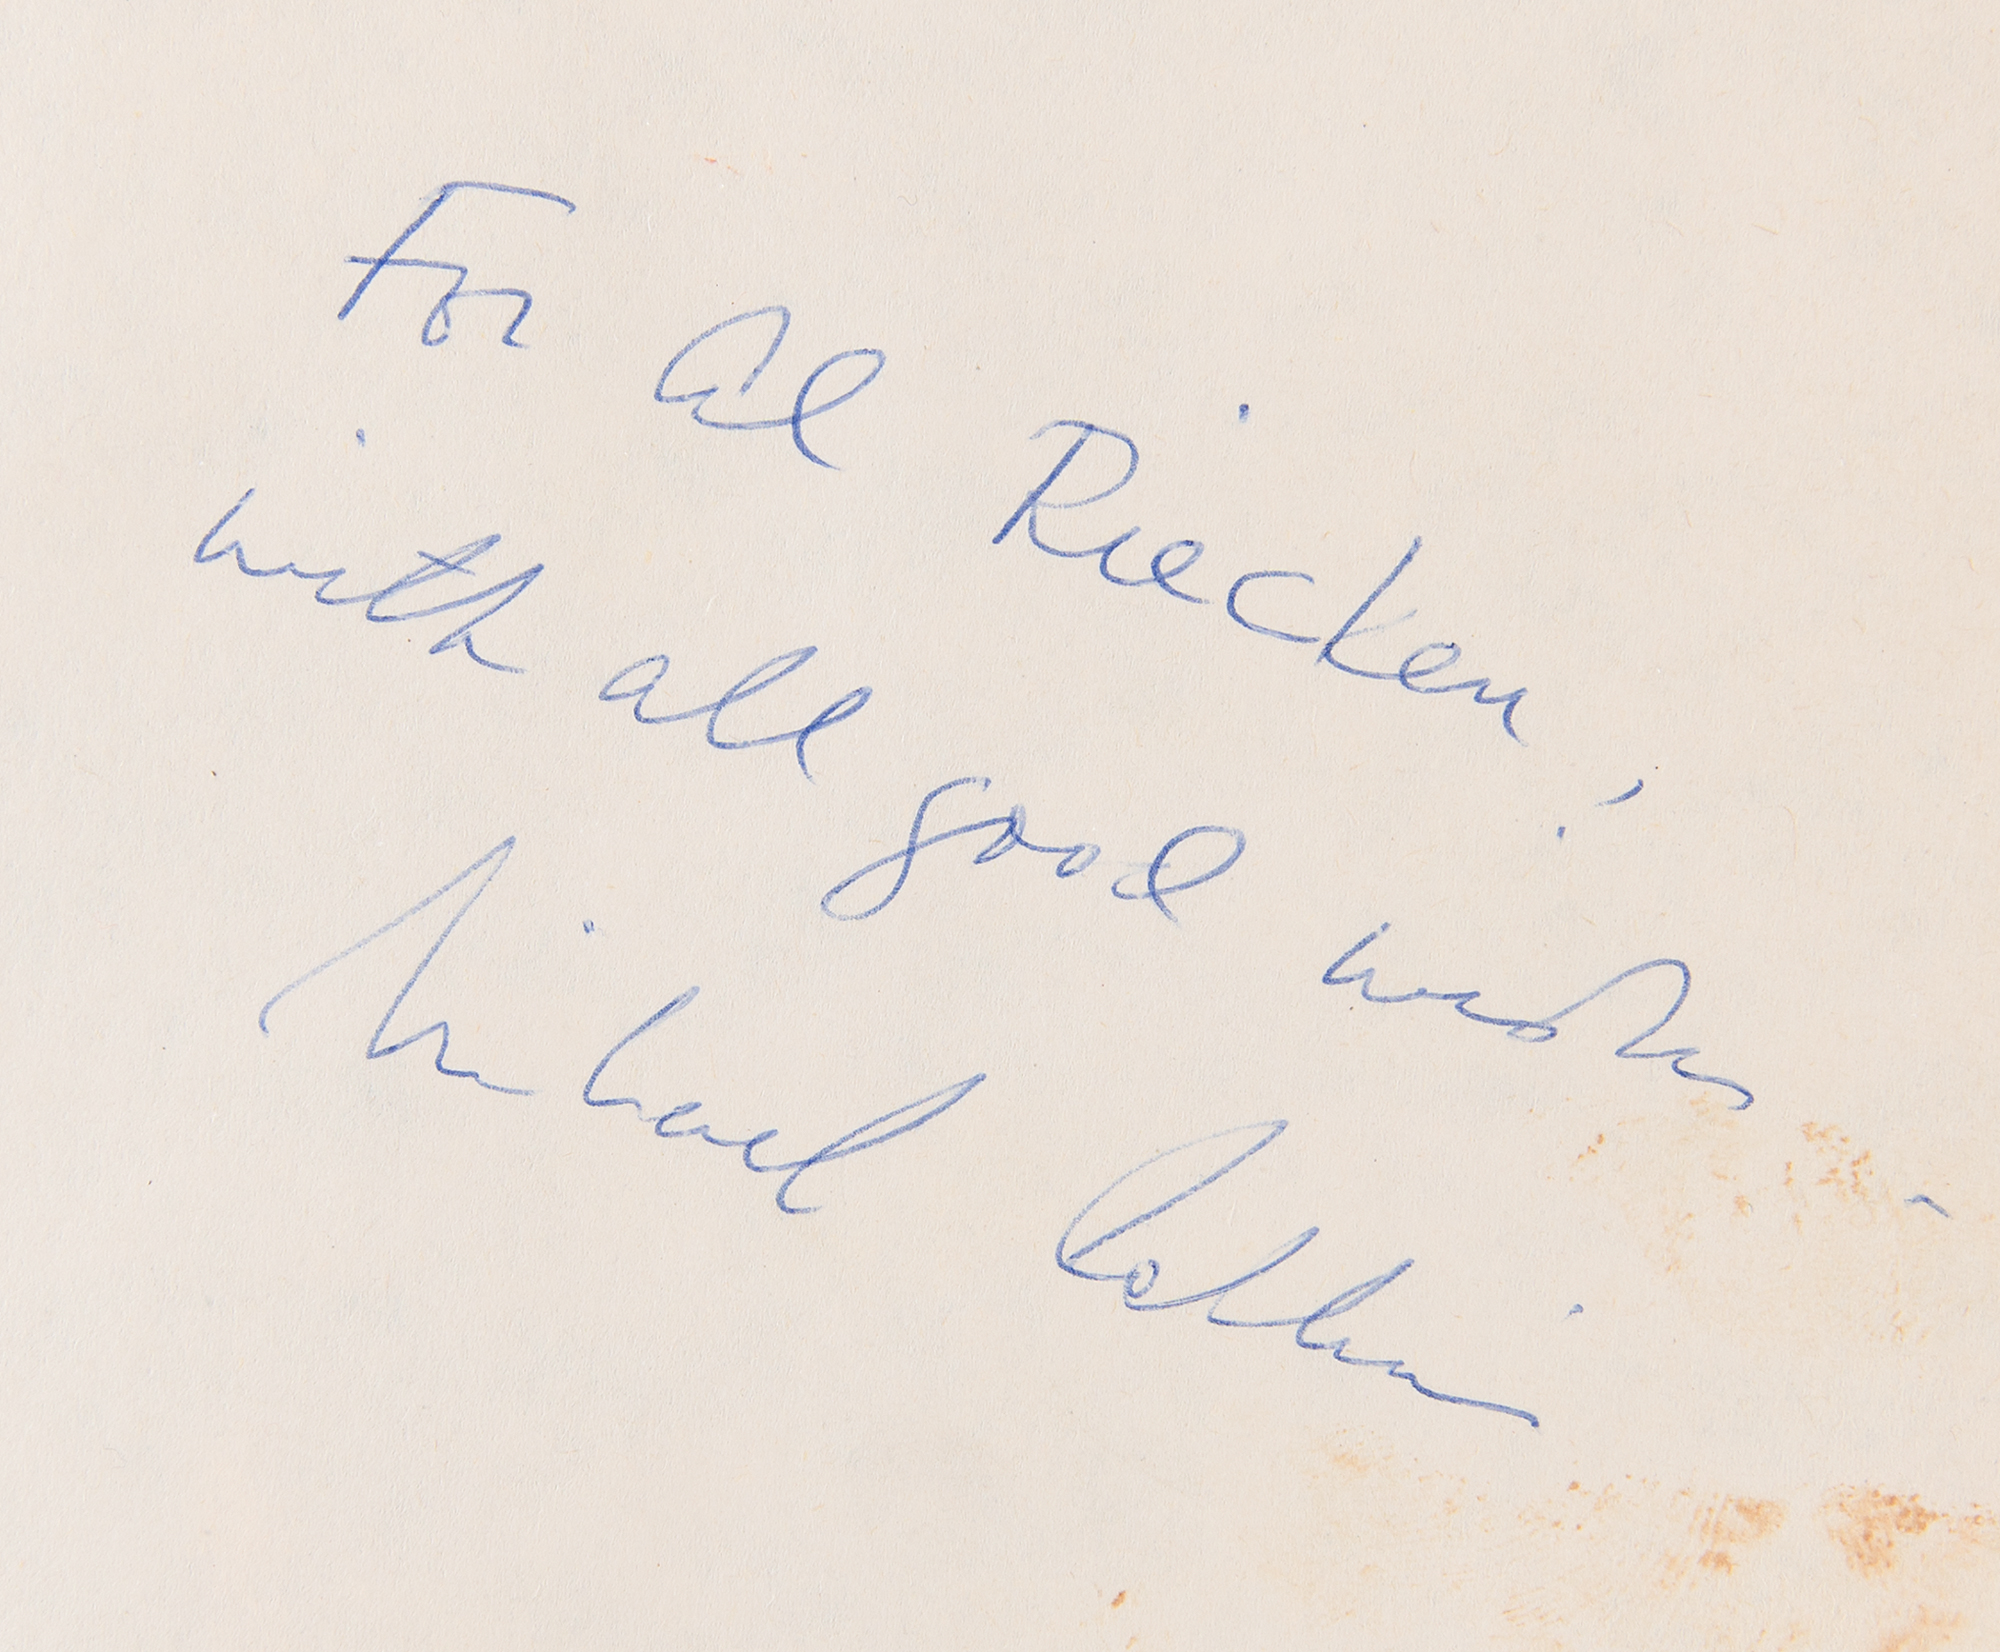 For Al Riecken,
with all good wishes -
Michael Collins